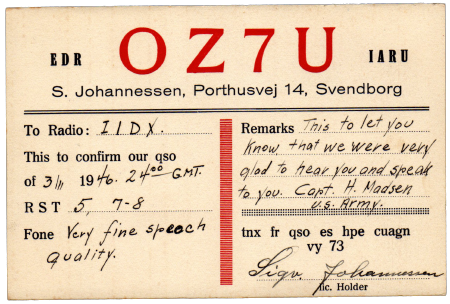 EDR OZ7U IARU
S. Johannessen, Porthusvej 14, Svendborg
To Radio: I1DX.
This to confirm our qso
of 3/11 1946. 24⁰⁰ GMT.
RST 5, 7-8
Fone Very fine speech
quality.
Remarks This to let you
know that we were very
glad to hear you and speak
to you. Capt. H. Madsen
U.S. Army.
tnx fr qso es hpe cuagn
vy 73
Sigv. Johannessen
lic. Holder